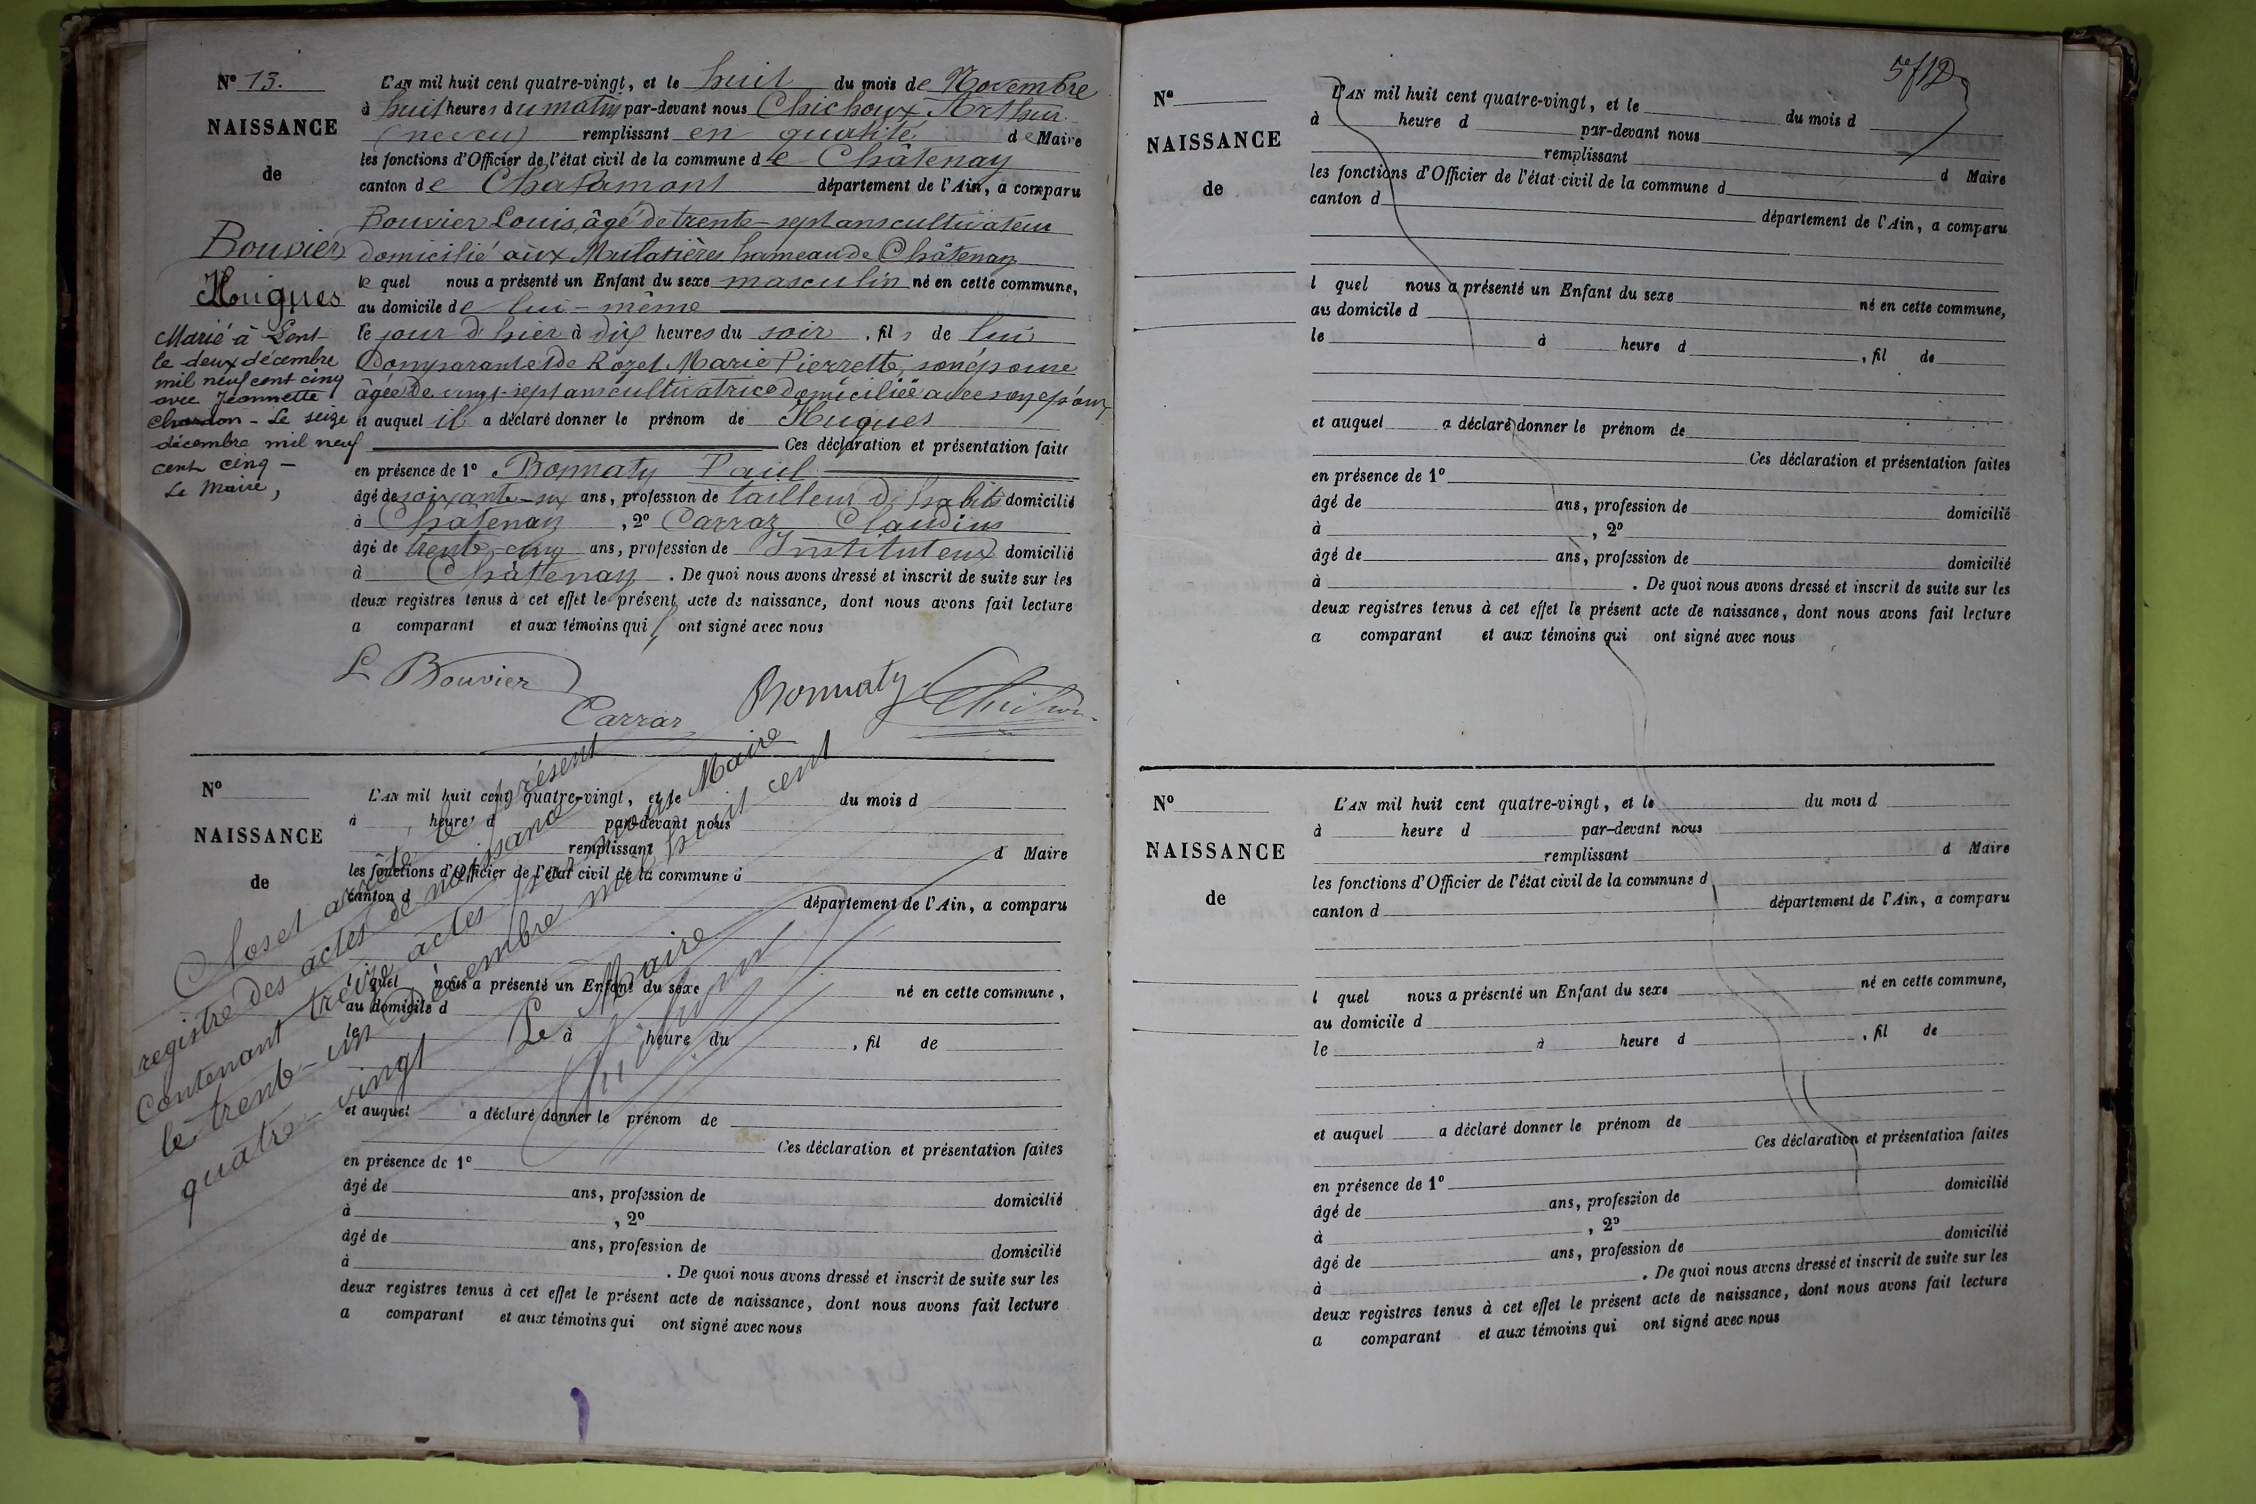 N° 13.
NAISSANCE
de
Bouvier
Hugues
Marié à Lent
le deux décembre
mil neuf cent cinq
avec Jeannette
Chardon - Le seize
décembre mil neuf
cent cinq -
Le Maire,
L'AN mil huit cent quatre-vingt, et le huit du mois de Novembre
à huit heures du matin par-devant nous Chichoux Arthur
(neveu) remplissant en qualité de Maire
les fonctions d'Officier de l'état civil de la commune de Châtenay
canton de Chalamont département de l'Ain, a comparu
Bouvier Louis, âgé de trente-sept ans cultivateur
domicilié aux Mulatières hameau de Châtenay
le quel nous a présenté un Enfant du sexe masculin né en cette commune,
au domicile de lui-même
le jour d'hier à dix heures du soir, fils de lui
Comparant et de Rozet Marie Pierrette, son épouse
âgée de vingt-sept ans cultivatrice domiciliée avec son époux
et auquel il a déclaré donner le prénom de Hugues
Ces déclaration et présentation faite
en présence de 1° Bonnaty Paul
âgé de soixante-six ans, profession de tailleur d'habits domicilié
à Châtenay, 2° Carraz Claudius
âgé de trente-cinq ans, profession de Instituteur domicilié
à Châtenay. De quoi nous avons dressé et inscrit de suite sur les
deux registres tenus à cet effet le présent acte de naissance, dont nous avons fait lecture
a comparant et aux témoins qui ont signé avec nous
L Bouvier
Carraz
Bonnaty
N°
NAISSANCE
de
L'AN mil huit cent quatre-vingt, et le du mois d
à heures d par-devant nous
remplissant d Maire
les fonctions d'Officier de l'état civil de la commune d
canton d département de l'Ain, a comparu
l quel nous a présenté un Enfant du sexe né en cette commune,
au domicile d
le à heure du , fil de
et auquel a déclaré donner le prénom de
Ces déclaration et présentation faites
en présence de 1°
âgé de ans, profession de domicilié
à , 2°
âgé de ans, profession de domicilié
à . De quoi nous avons dressé et inscrit de suite sur les
deux registres tenus à cet effet le présent acte de naissance, dont nous avons fait lecture
a comparant et aux témoins qui ont signé avec nous
Clos et arrêté le présent
registre des actes de naissance
Contenant treize actes par nous Maire
le trente-un Décembre mil huit cent
quatre-vingt
Le Maire
5/12
N°
NAISSANCE
de
L'AN mil huit cent quatre-vingt, et le du mois d
à heure d par-devant nous
remplissant d Maire
les fonctions d'Officier de l'état civil de la commune d
canton d département de l'Ain, a comparu
l quel nous a présenté un Enfant du sexe né en cette commune,
au domicile d
le à heure d , fil de
et auquel a déclaré donner le prénom de
Ces déclaration et présentation faites
en présence de 1°
âgé de ans, profession de domicilié
à , 2°
âgé de ans, profession de domicilié
à . De quoi nous avons dressé et inscrit de suite sur les
deux registres tenus à cet effet le présent acte de naissance, dont nous avons fait lecture
a comparant et aux témoins qui ont signé avec nous
N°
NAISSANCE
de
L'AN mil huit cent quatre-vingt, et le du mois d
à heure d par-devant nous
remplissant d Maire
les fonctions d'Officier de l'état civil de la commune d
canton d département de l'Ain, a comparu
l quel nous a présenté un Enfant du sexe né en cette commune,
au domicile d
le à heure d , fil de
et auquel a déclaré donner le prénom de
Ces déclaration et présentation faites
en présence de 1°
âgé de ans, profession de domicilié
à , 2°
âgé de ans, profession de domicilié
à . De quoi nous avons dressé et inscrit de suite sur les
deux registres tenus à cet effet le présent acte de naissance, dont nous avons fait lecture
a comparant et aux témoins qui ont signé avec nous